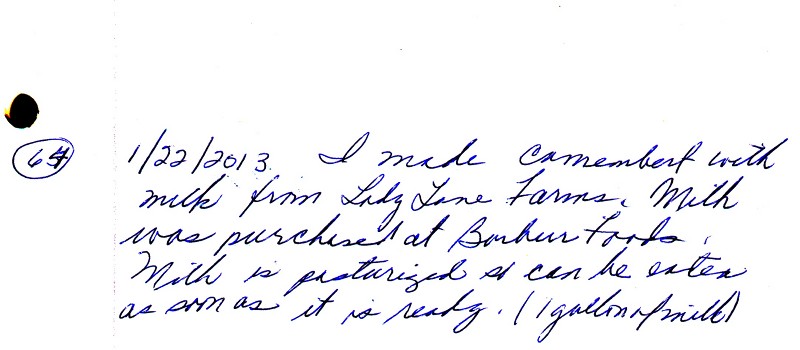 64 1/22/2013 I made camembert with
milk from Lady Lane Farms. Milk
was purchased at Barbur Foods.
Milk is pasturized so can be eaten
as soon as it is ready. (1 gallon of milk)